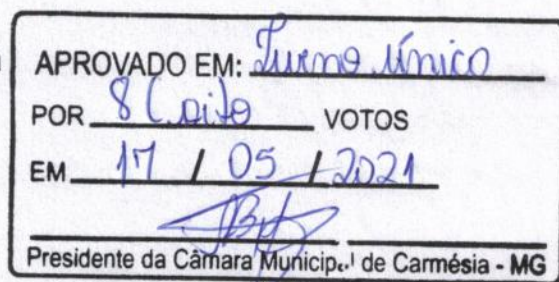 APROVADO EM: Turno Único
POR 8 (oito VOTOS
EM 17 / 05 / 2021
Presidente da Câmara Municipal de Carmésia - MG